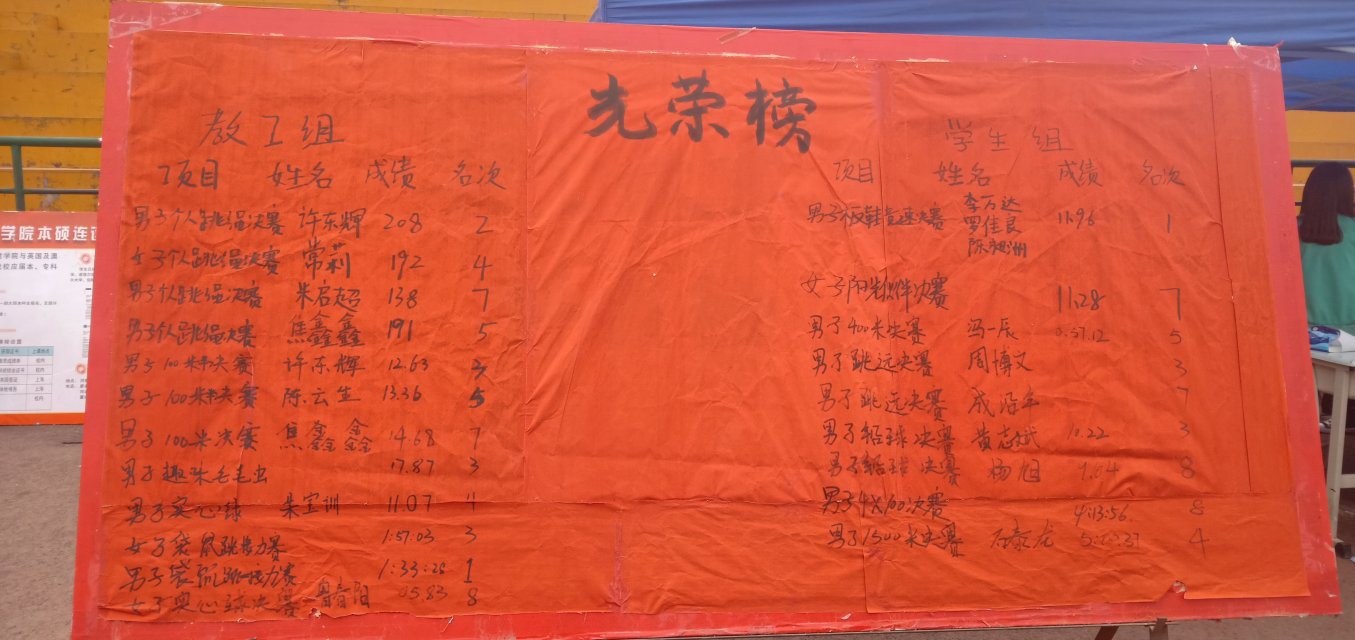 光荣榜
教工组
项目 姓名 成绩 名次
男子个人跳绳决赛 许东辉 208 2
女子个人跳绳决赛 常莉 192 4
男子个人跳绳决赛 朱启超 138 7
男子个人跳绳决赛 焦鑫鑫 191 5
男子100米决赛 许东辉 12.63 3
男子100米决赛 陈云生 13.36 5
男子100米决赛 焦鑫鑫 14.68 7
男子趣味毛毛虫 17.87 3
男子实心球 朱宝训 11.07 4
女子袋鼠跳接力赛 1:57.03 3
男子袋鼠跳接力赛 1:33:28 1
女子实心球决赛 05.83 8
学生组
项目 姓名 成绩 名次
男子板鞋竞速决赛 李万达 罗佳良 11.96 1
女子阳光伙伴决赛 11.28 7
男子400米决赛 冯一辰 0:57.12 5
男子跳远决赛 周博文 3
男子跳远决赛 7
男子铅球决赛 黄志斌 10.22 3
男子铅球决赛 杨旭 9.04 8
男子4X100决赛 4:13:56 8
男子1500米决赛 石泰龙 4
学院本硕连读